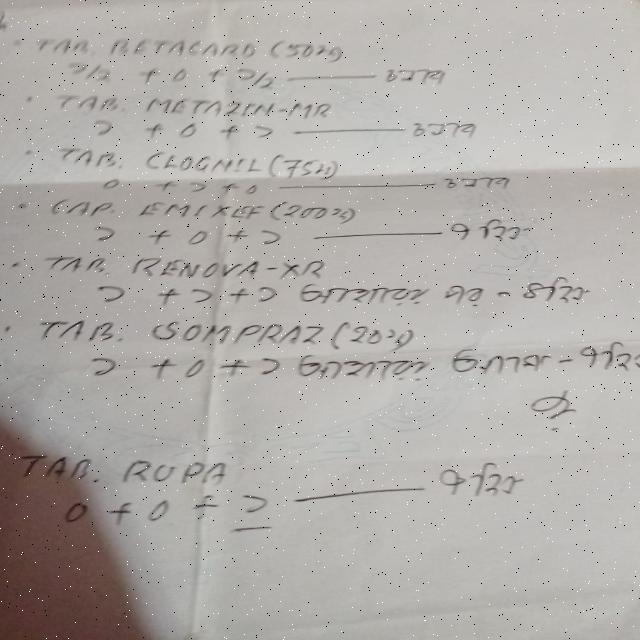 • TAB. BETACARD (50৯)
১/২ + ০ + ১/২ ——— চলবে
• TAB. METAZIN-MR
১ + ০ + ১ ——— চলবে
• TAB. CLOGNIL (75৯)
০ + ১ + ০ ——— চলবে
• CAP. EMIXEF (200৯)
১ + ০ + ১ ——— ৭ দিন
• TAB. RENOVA-XR
১ + ১ + ১ খাওয়ার পর - ৪দিন
• TAB. SOMPRAZ (20৯)
১ + ০ + ১ খাওয়ার আগে - ৭দিন
TAB. RUPA
০ + ০ + ১ ——— ৭ দিন